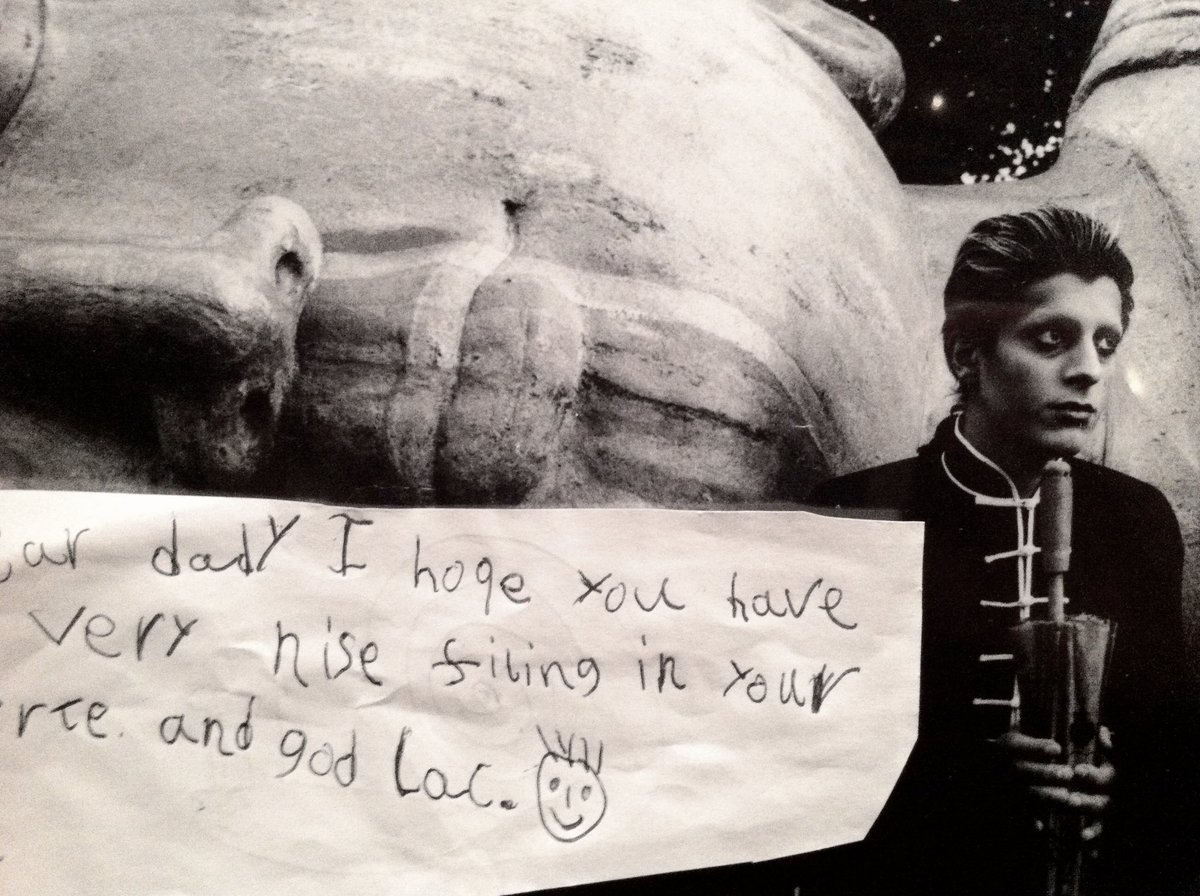 ar dady I hope you have
very nise filing in your
rte. and god Lac.